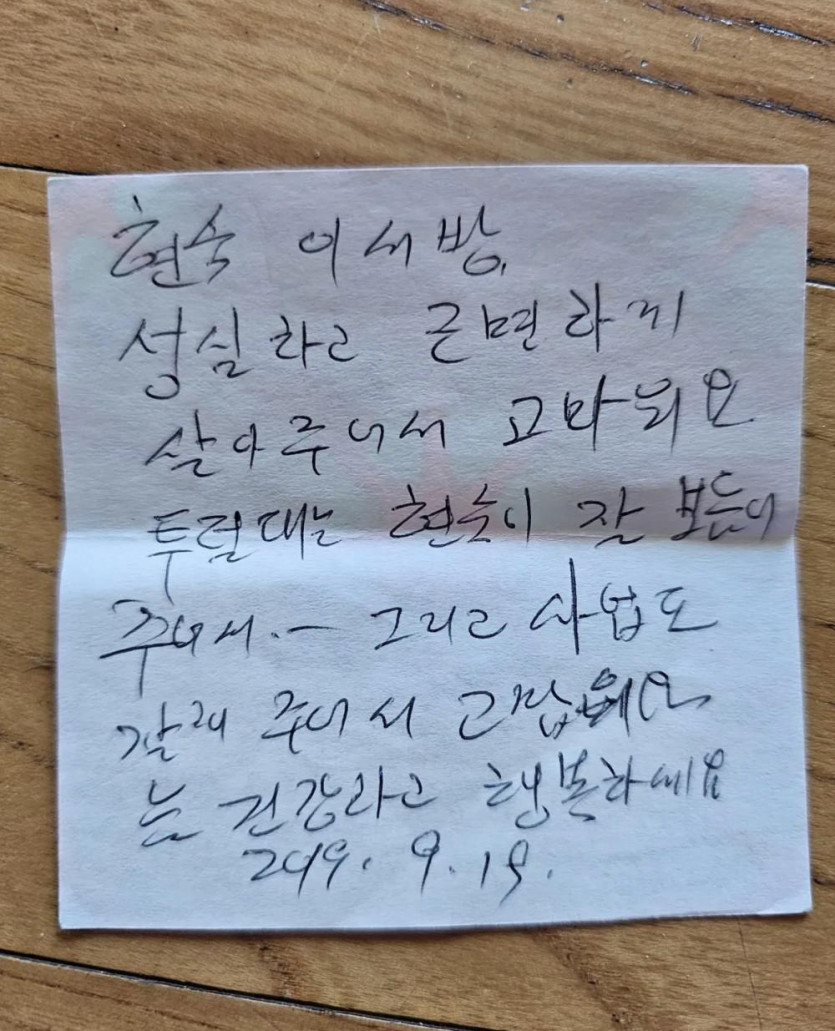 현숙 이서방,
성실하고 근면하게
살아주어서 고마워요
투덜대는 현숙이 잘 보듬어
주어서.— 그리고 사업도
잘해 주어서 고맙
늘 건강하고 행복하세요
2019. 9. 19.